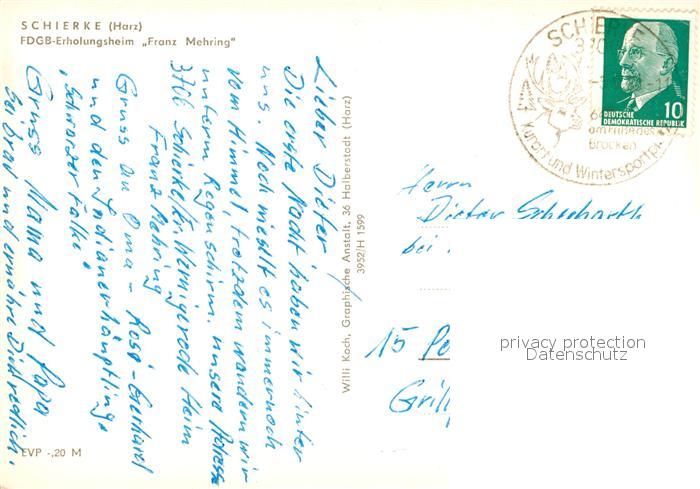 SCHIERKE (Harz)
FDGB-Erholungsheim „Franz Mehring"
Lieber Dieter!
Die erste Nacht haben wir hinter
uns. Noch nieselt es immer noch
vom Himmel, trotzdem wandern wir
unterm Regenschirm. Unsere Adresse
3706 Schierke, Kr. Wernigerode Heim
Franz Mehring
Gruss an Oma - Rosé - Ekehard
und den Indianerhäuptling,
"Schwarzer Falke"
Gruss Mama und Papa
Sei brav und ernähre Dich redlich.
EVP -,20 M
Willi Koch, Graphische Anstalt, 36 Halberstadt (Harz)
3952/H 1599
SCHIERKE
Kurort und Wintersport
am Fuße des
Brocken
10
DEUTSCHE
DEMOKRATISCHE REPUBLIK
Herrn
Dieter
bei
15
privacy protection
Datenschutz